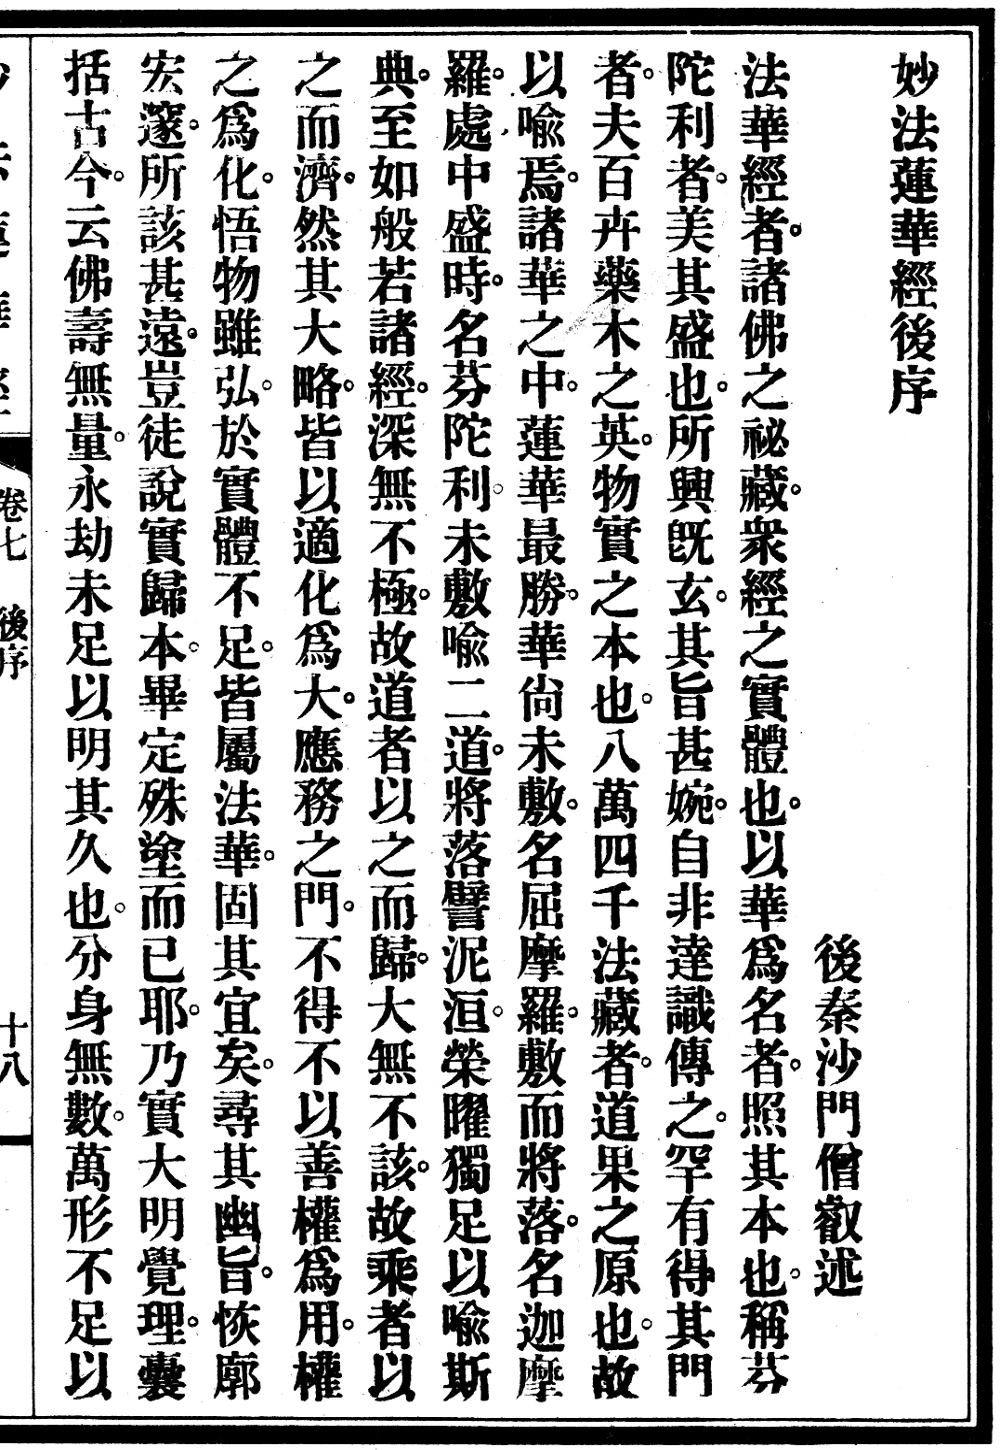 妙法蓮華經後序
後秦沙門僧叡述
法華經者。諸佛之祕藏。衆經之實體也。以華爲名者。照其本也。稱芬
陀利者。美其盛也。所興旣玄。其旨甚婉。自非達識傳之。罕有得其門
者。夫百卉藥木之英。物實之本也。八萬四千法藏者。道果之原也。故
以喩焉。諸華之中。蓮華最勝。華尙未敷。名屈摩羅。敷而將落。名迦摩
羅。處中盛時。名芬陀利。未敷喩二道。將落譬泥洹。榮曜獨足以喩斯
典。至如般若諸經。深無不極。故道者以之而歸。大無不該。故乘者以
之而濟。然其大略。皆以適化爲大。應務之門。不得不以善權爲用。權
之爲化。悟物雖弘。於實體不足。皆屬法華。固其宜矣。尋其幽旨。恢廓
宏邃。所該甚遠。豈徒說實歸本。畢定殊塗而已耶。乃實大明覺理。囊
括古今。云佛壽無量。永劫未足以明其久也。分身無數。萬形不足以
卷七 後序
十八